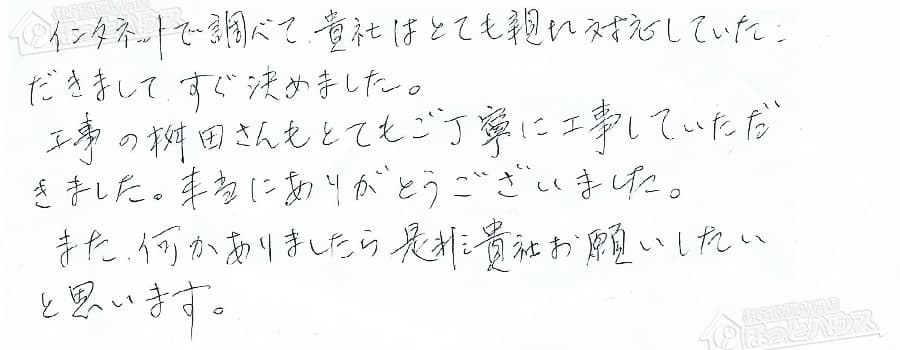 インタネットで調べて、貴社はとても親れ対応していた
だきまして、すぐ決めました。
工事の桝田さんもとてもご丁寧に工事していただ
きました。本当にありがとうございました。
また、何かありましたら是非貴社お願いしたい
と思います。
ほっとハウス